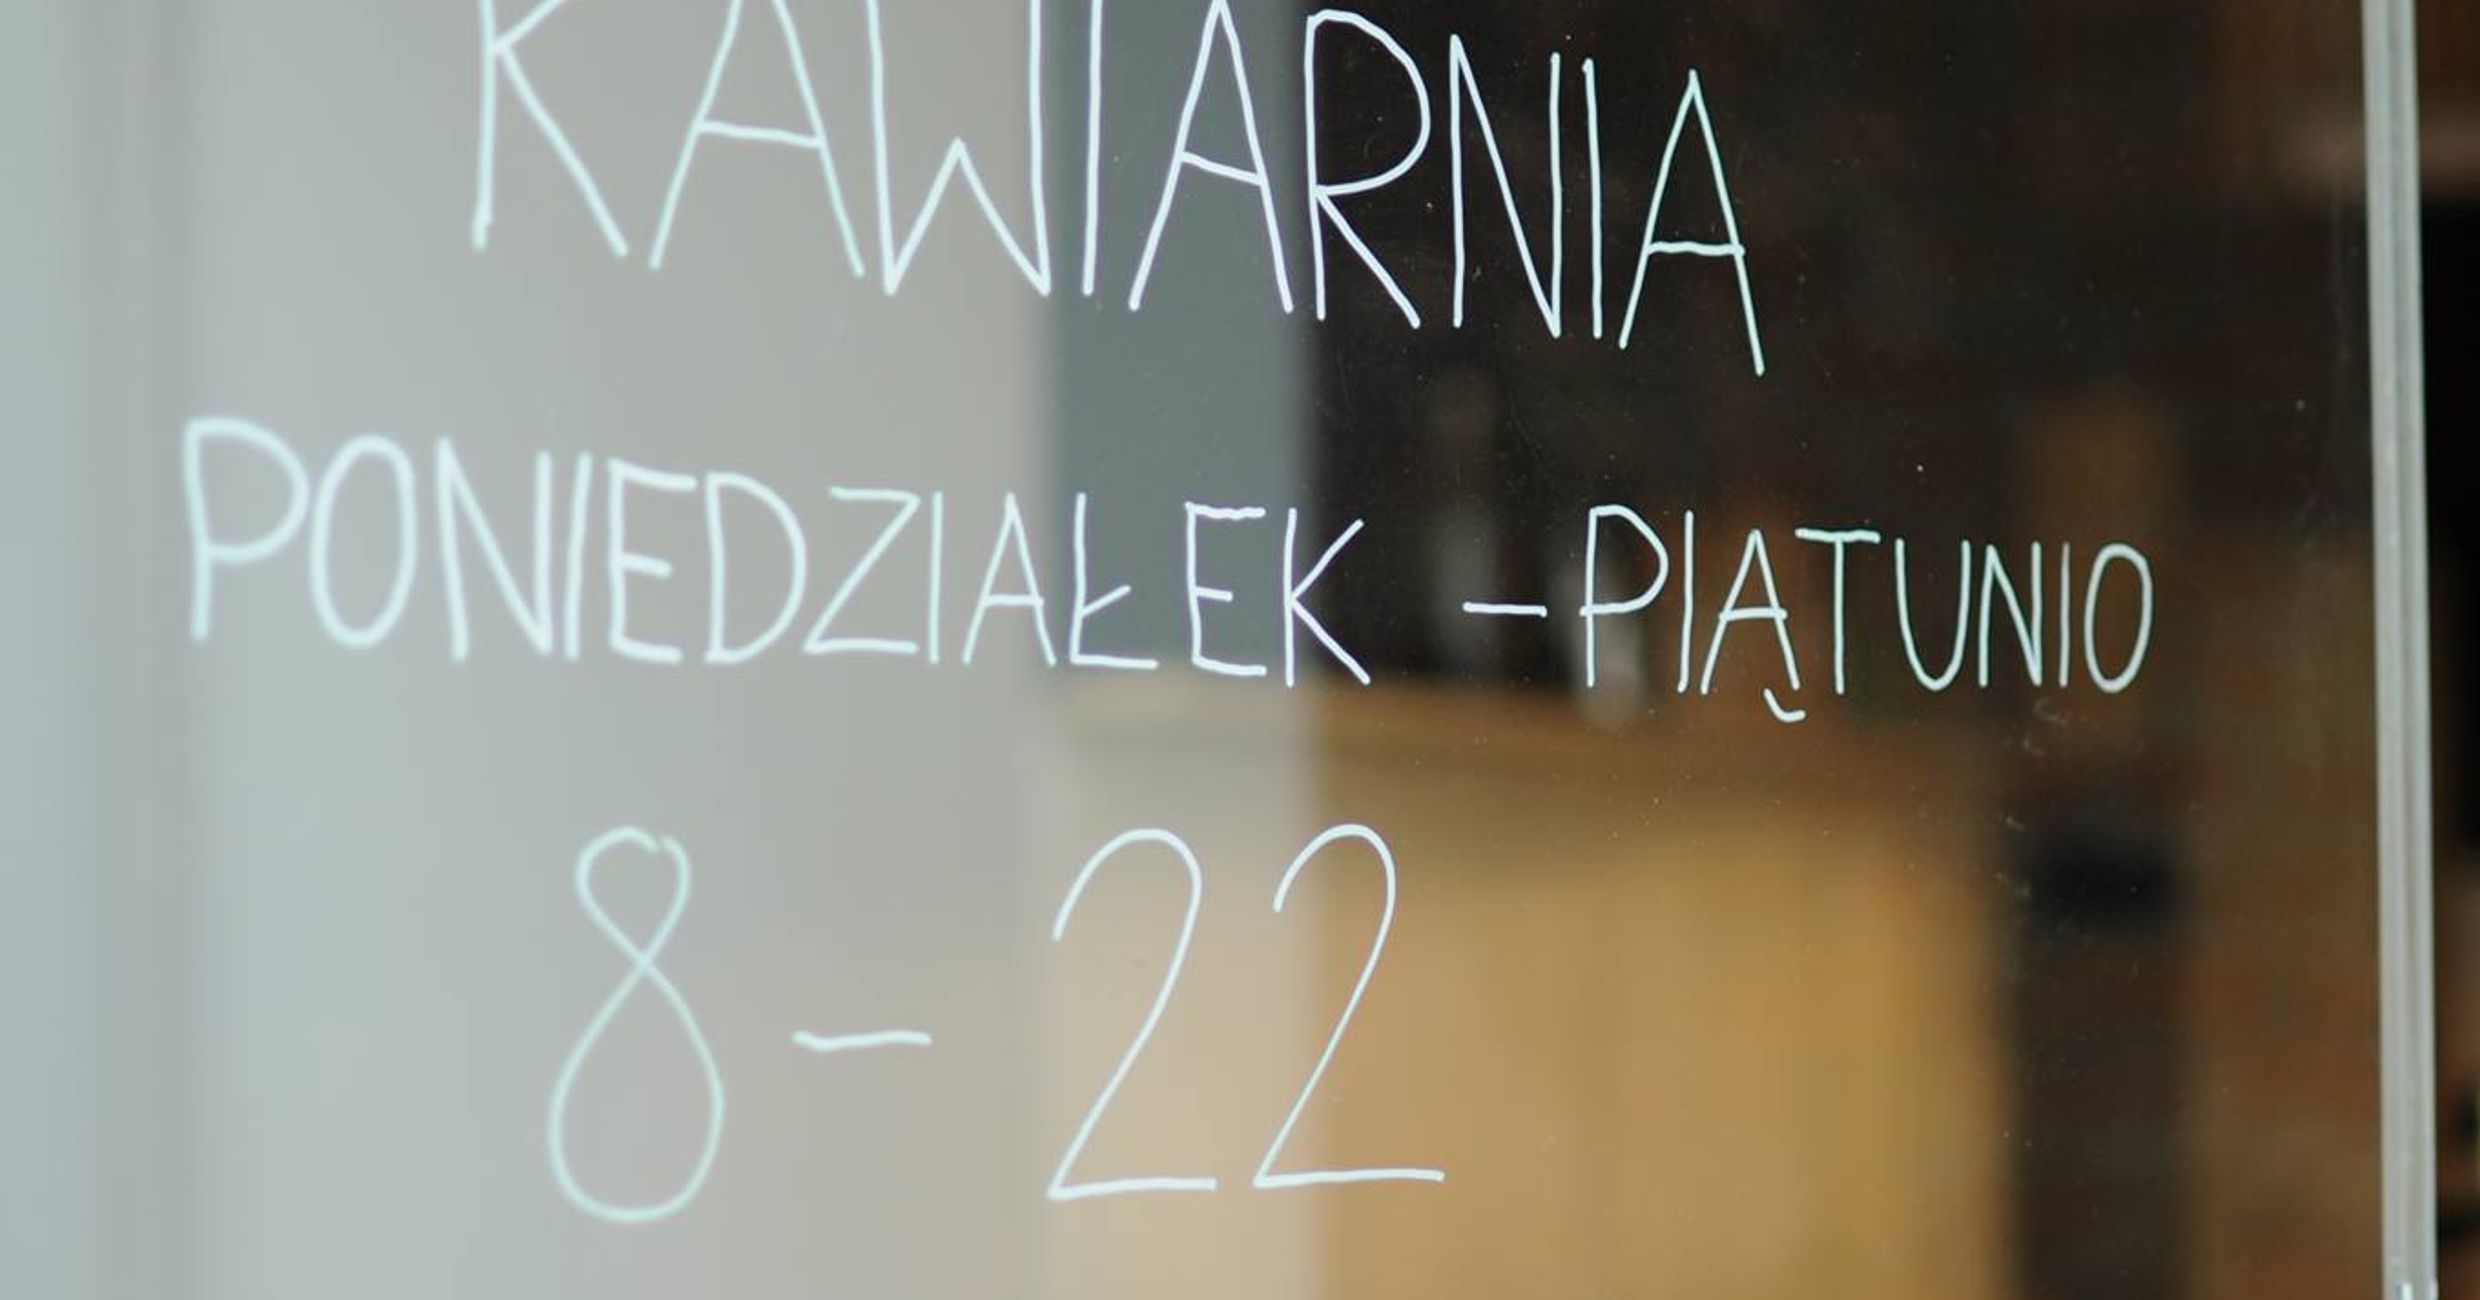 KAWIARNIA
PONIEDZIAŁEK - PIĄTUNIO
8 - 22